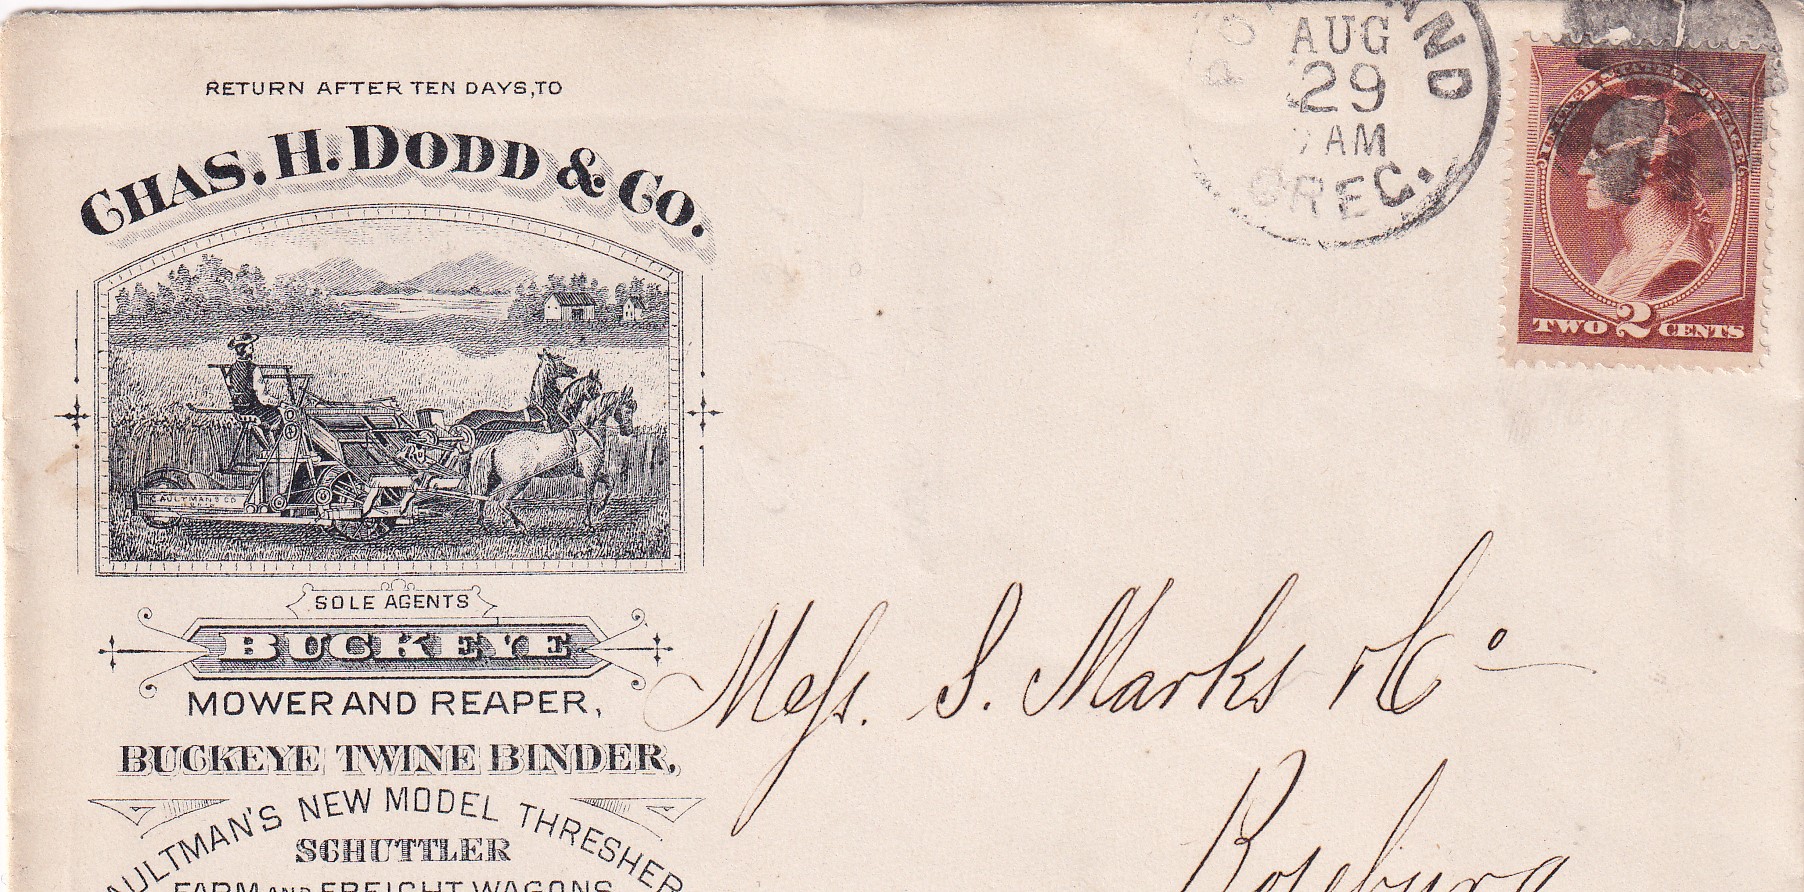 RETURN AFTER TEN DAYS, TO
CHAS. H. DODD & CO.
C AULTMAN & CO
SOLE AGENTS
BUCKEYE
MOWER AND REAPER,
BUCKEYE TWINE BINDER,
AULTMAN'S NEW MODEL THRESHER
SCHUTTLER
FARM AND FREIGHT WAGONS
AUG
29
AM
OREG.
TWO 2 CENTS
Mess. S. Marks & Co
Roseburg